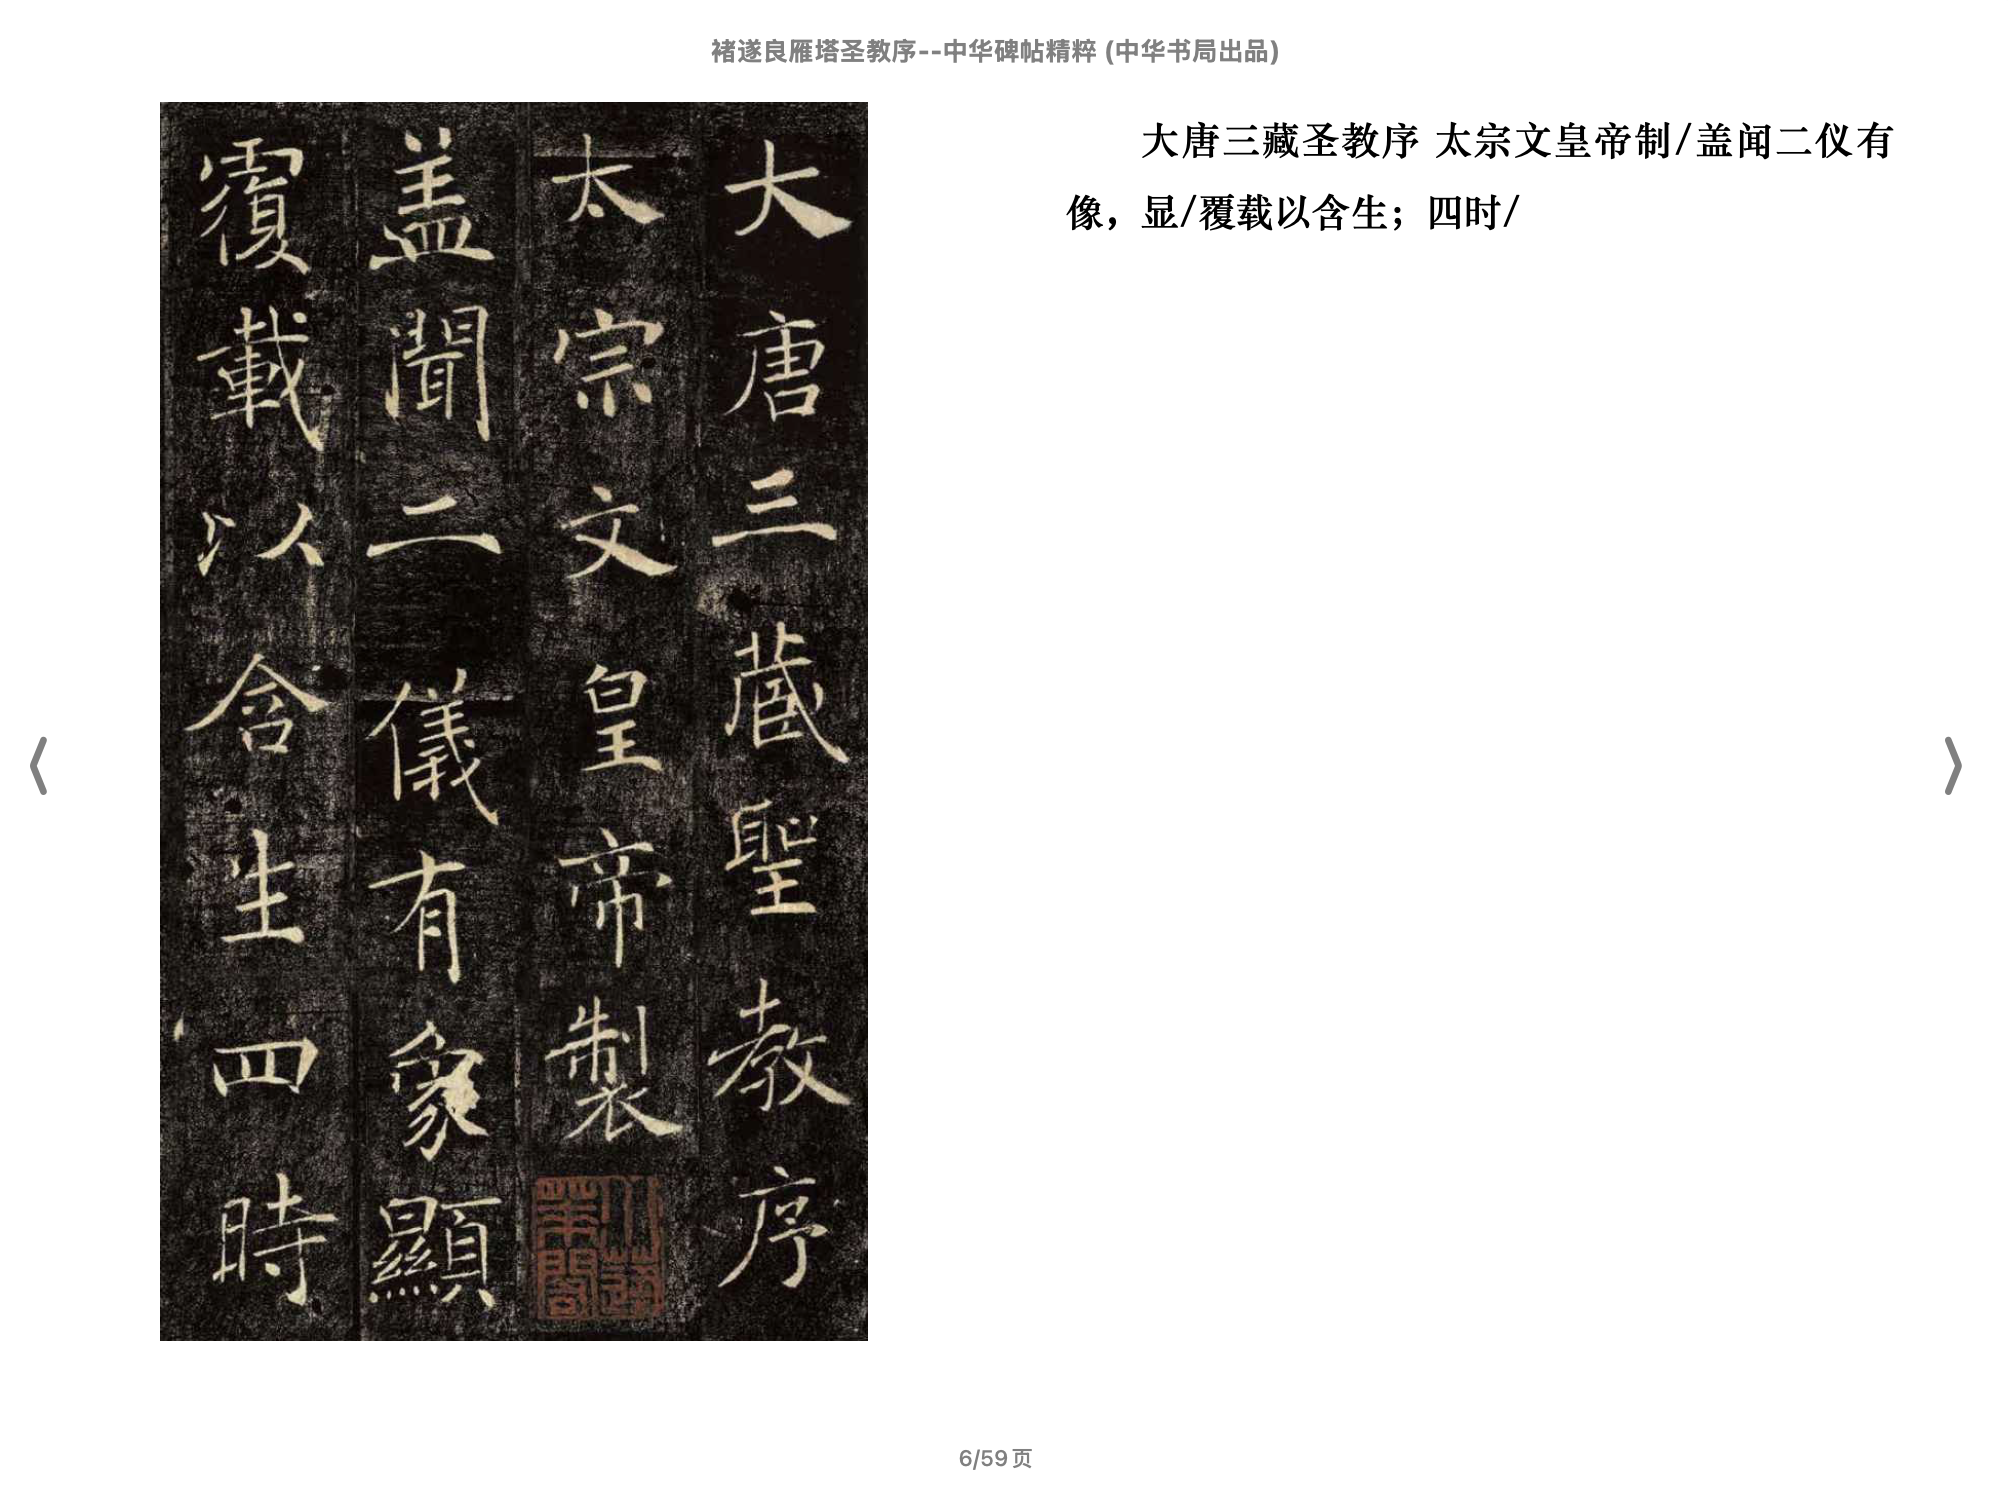 褚遂良雁塔圣教序--中华碑帖精粹 (中华书局出品)
大唐三藏聖教序
太宗文皇帝製
盖聞二儀有象顯
覆載以含生四時
大唐三藏圣教序 太宗文皇帝制/盖闻二仪有
像，显/覆载以含生；四时/
6/59页